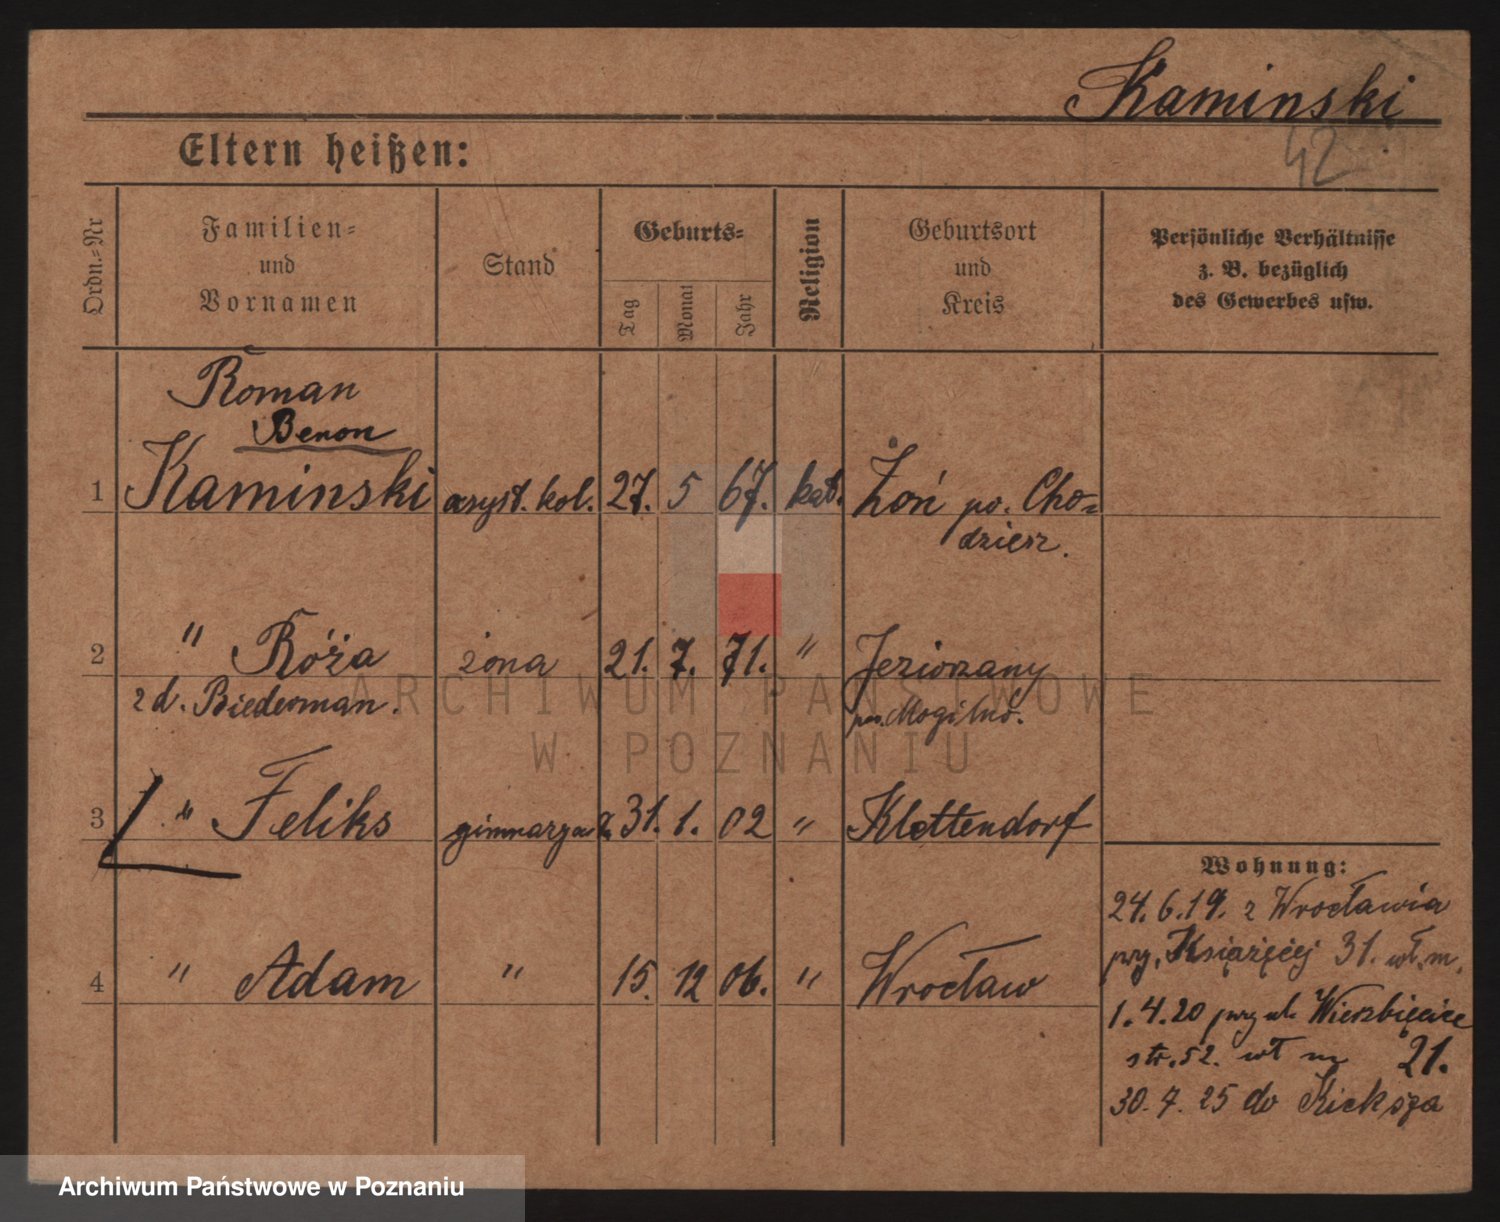 Kaminski
42
Eltern heißen:
Ordn.-Nr
Familien-
und
Vornamen
Stand
Geburts-
Tag
Monat
Jahr
Religion
Geburtsort
und
Kreis
Persönliche Verhältnisse
z. B. bezüglich
des Gewerbes usw.
Roman
Benon
1 Kaminski asyst. kol. 27. 5 67. kat. Żoń po. Cho-
dzież.
2 " Róża żona 21. 7. 71. " Jeziorzany
z d. Biederman. pow. Mogilno.
3 " Feliks 31. 1. 02 " Klettendorf
4 " Adam " 15. 12 06. " Wrocław
Wohnung:
24.6.19. z Wrocławia
przy. Książęcej 31. wł. m.
1.4.20 przy ul. Wierzbięcice
str. 52. wł m 21.
30.7.25 do Kieksza
ARCHIWUM PAŃSTWOWE
W POZNANIU
Archiwum Państwowe w Poznaniu